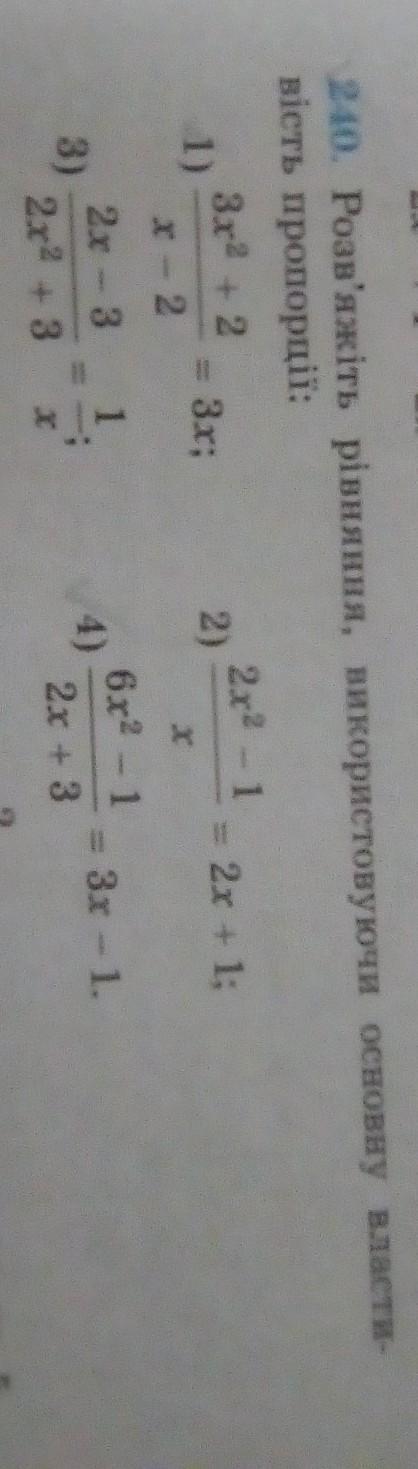 240. Розв'яжіть рівняння, використовуючи основну власти-
вість пропорції:
1) (3x² + 2)/(x − 2) = 3x; 2) (2x² − 1)/x = 2x + 1;
3) (2x − 3)/(2x² + 3) = 1/x; 4) (6x² − 1)/(2x + 3) = 3x − 1.